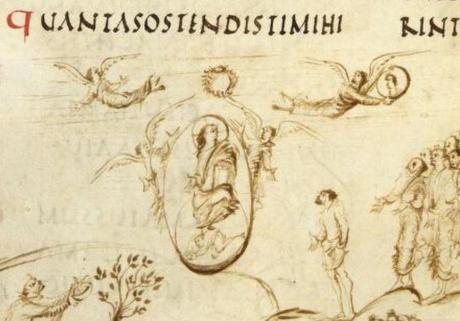 QUANTASOSTENDISTIMIHI
RINT